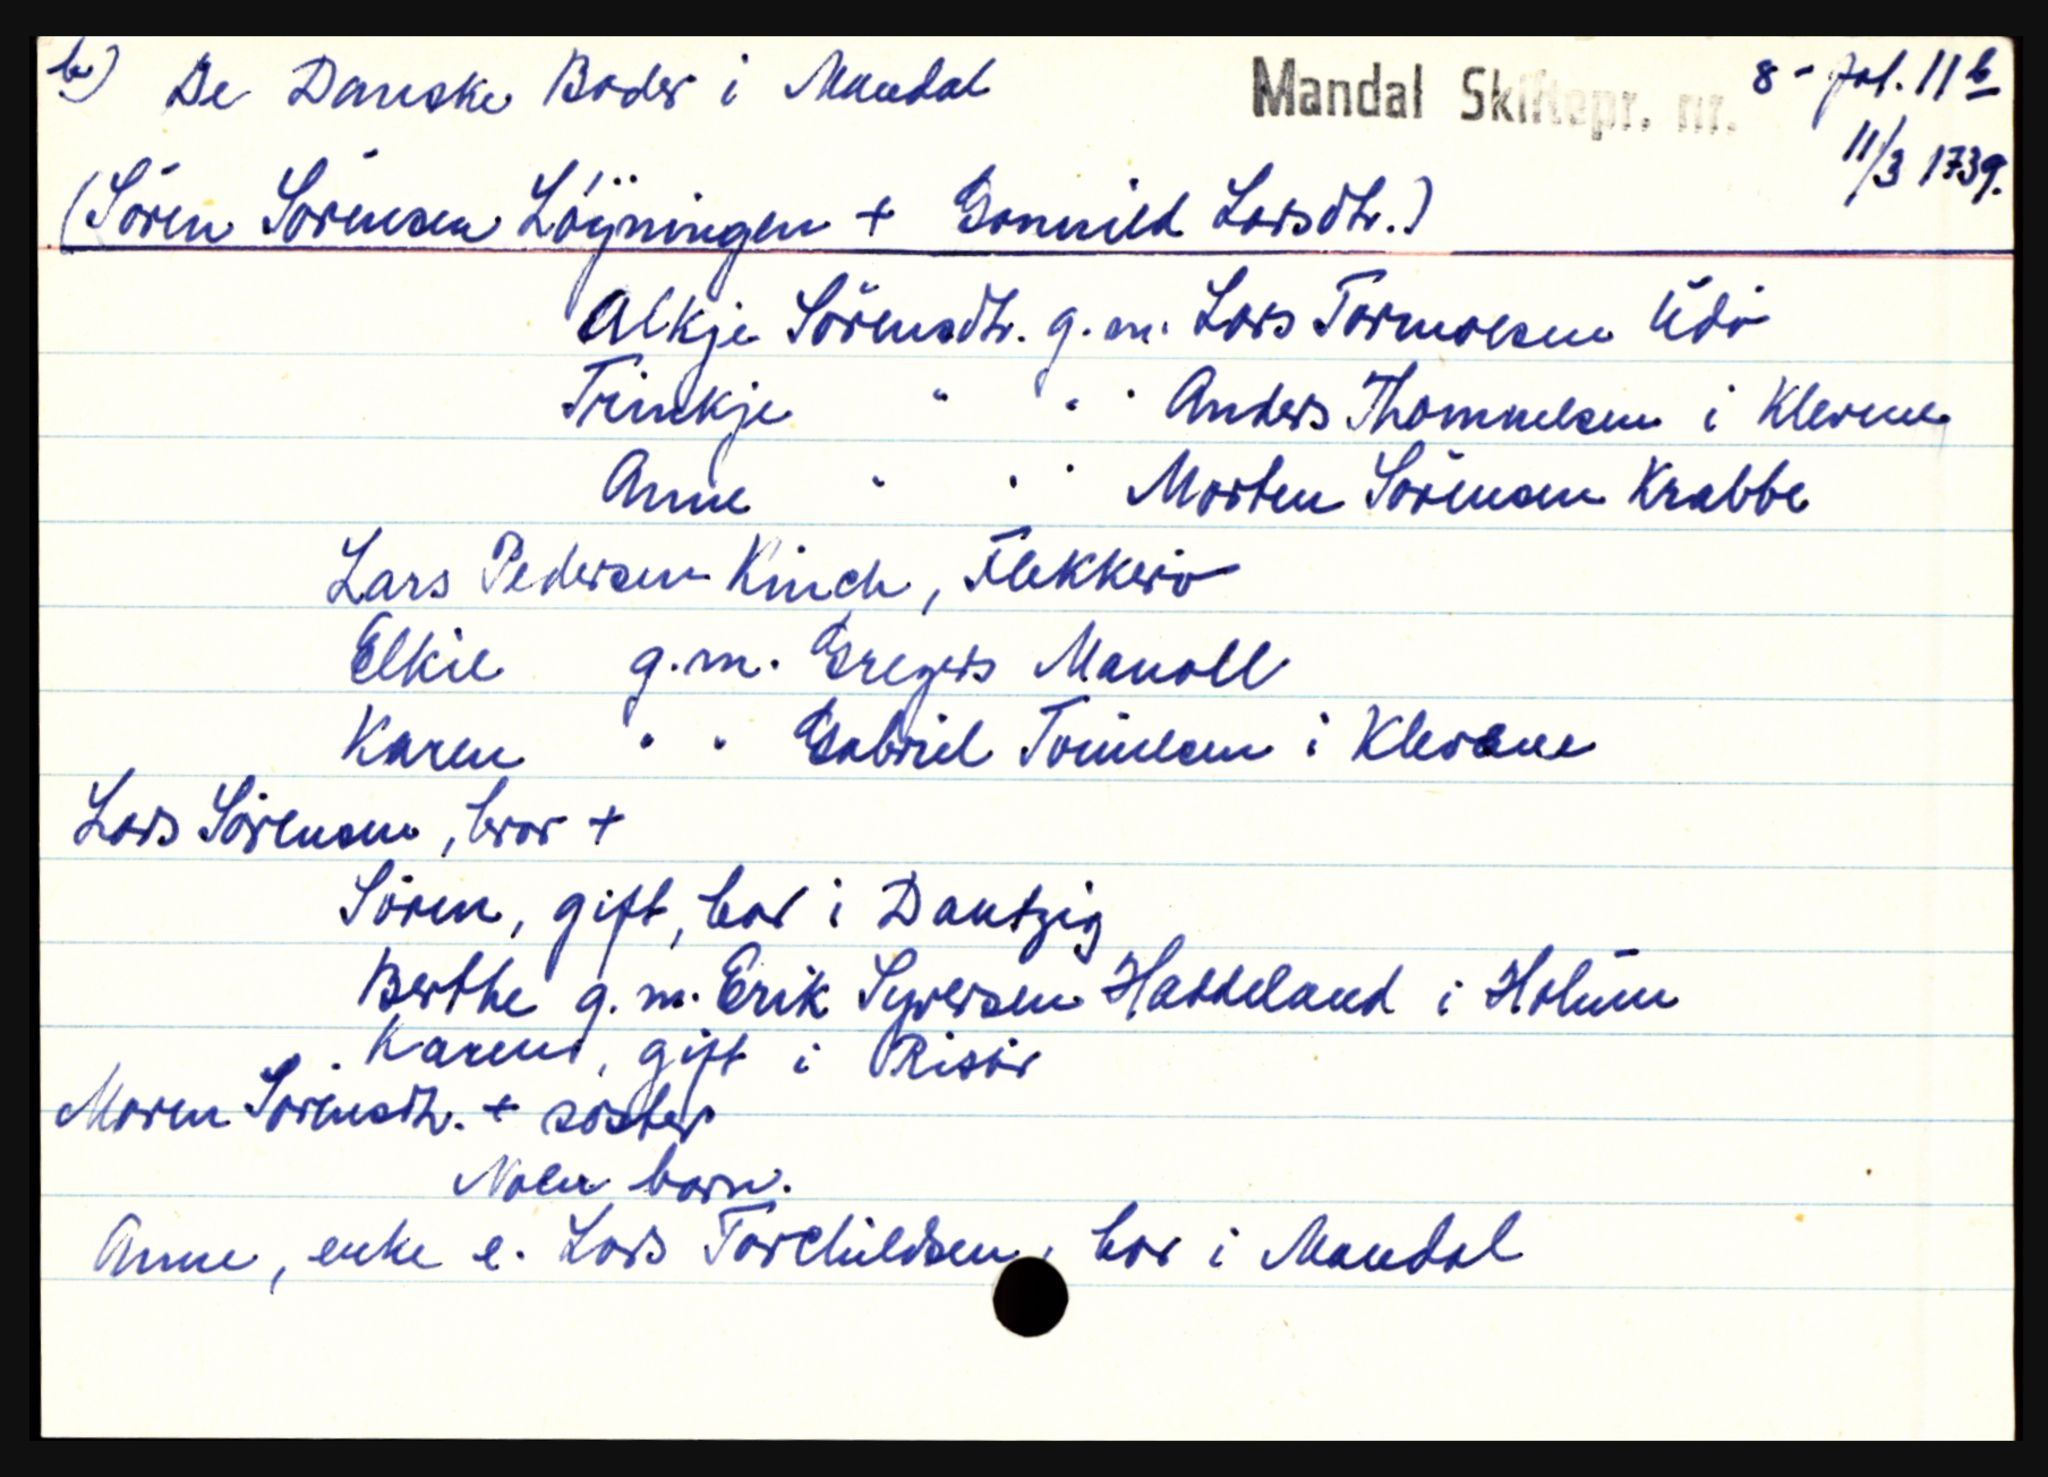 b) De Danske Boder i Mandal Mandal Skiftepr. nr. 8 - fol. 11b
11/3 1739.
(Sören Sörensen Löÿningen + Gonnild Larsdtr.)
Alkje Sörensdtr. g. m. Lars Tormolsen Udö
Trinkje " " " Anders Thommelsen i Klevene
Anne " " " Morten Sörensen Krabbe
Lars Pedersen Kinch, Flekkerö
Elkie g. m. Gregers Manoll
Karen " " Gabriel Tönnesen i Klevene
Lars Sörensen, bror +
Sören, gift, bor i Dantzig
Berthe g. m. Erik Syversen Haddeland i Holum
Karen, gift i Risör
Maren Sörensdtr. + söster
Noen barn.
Anne, enke e. Lars Torchildsen, bor i Mandal